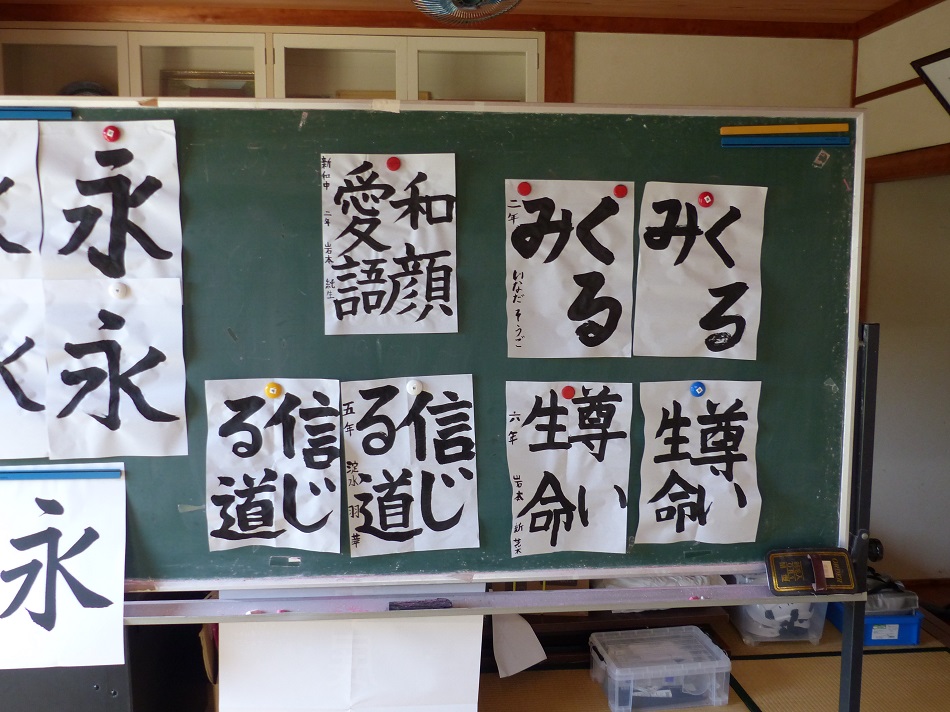 永
永
永
和顔
愛語
新和中 二年 岩本 純生
くる
み
二年 いなだ そうご
くる
み
信じ
る道
信じ
る道
五年 淀水 羽華
尊い
生命
六年 岩本
尊い
生命